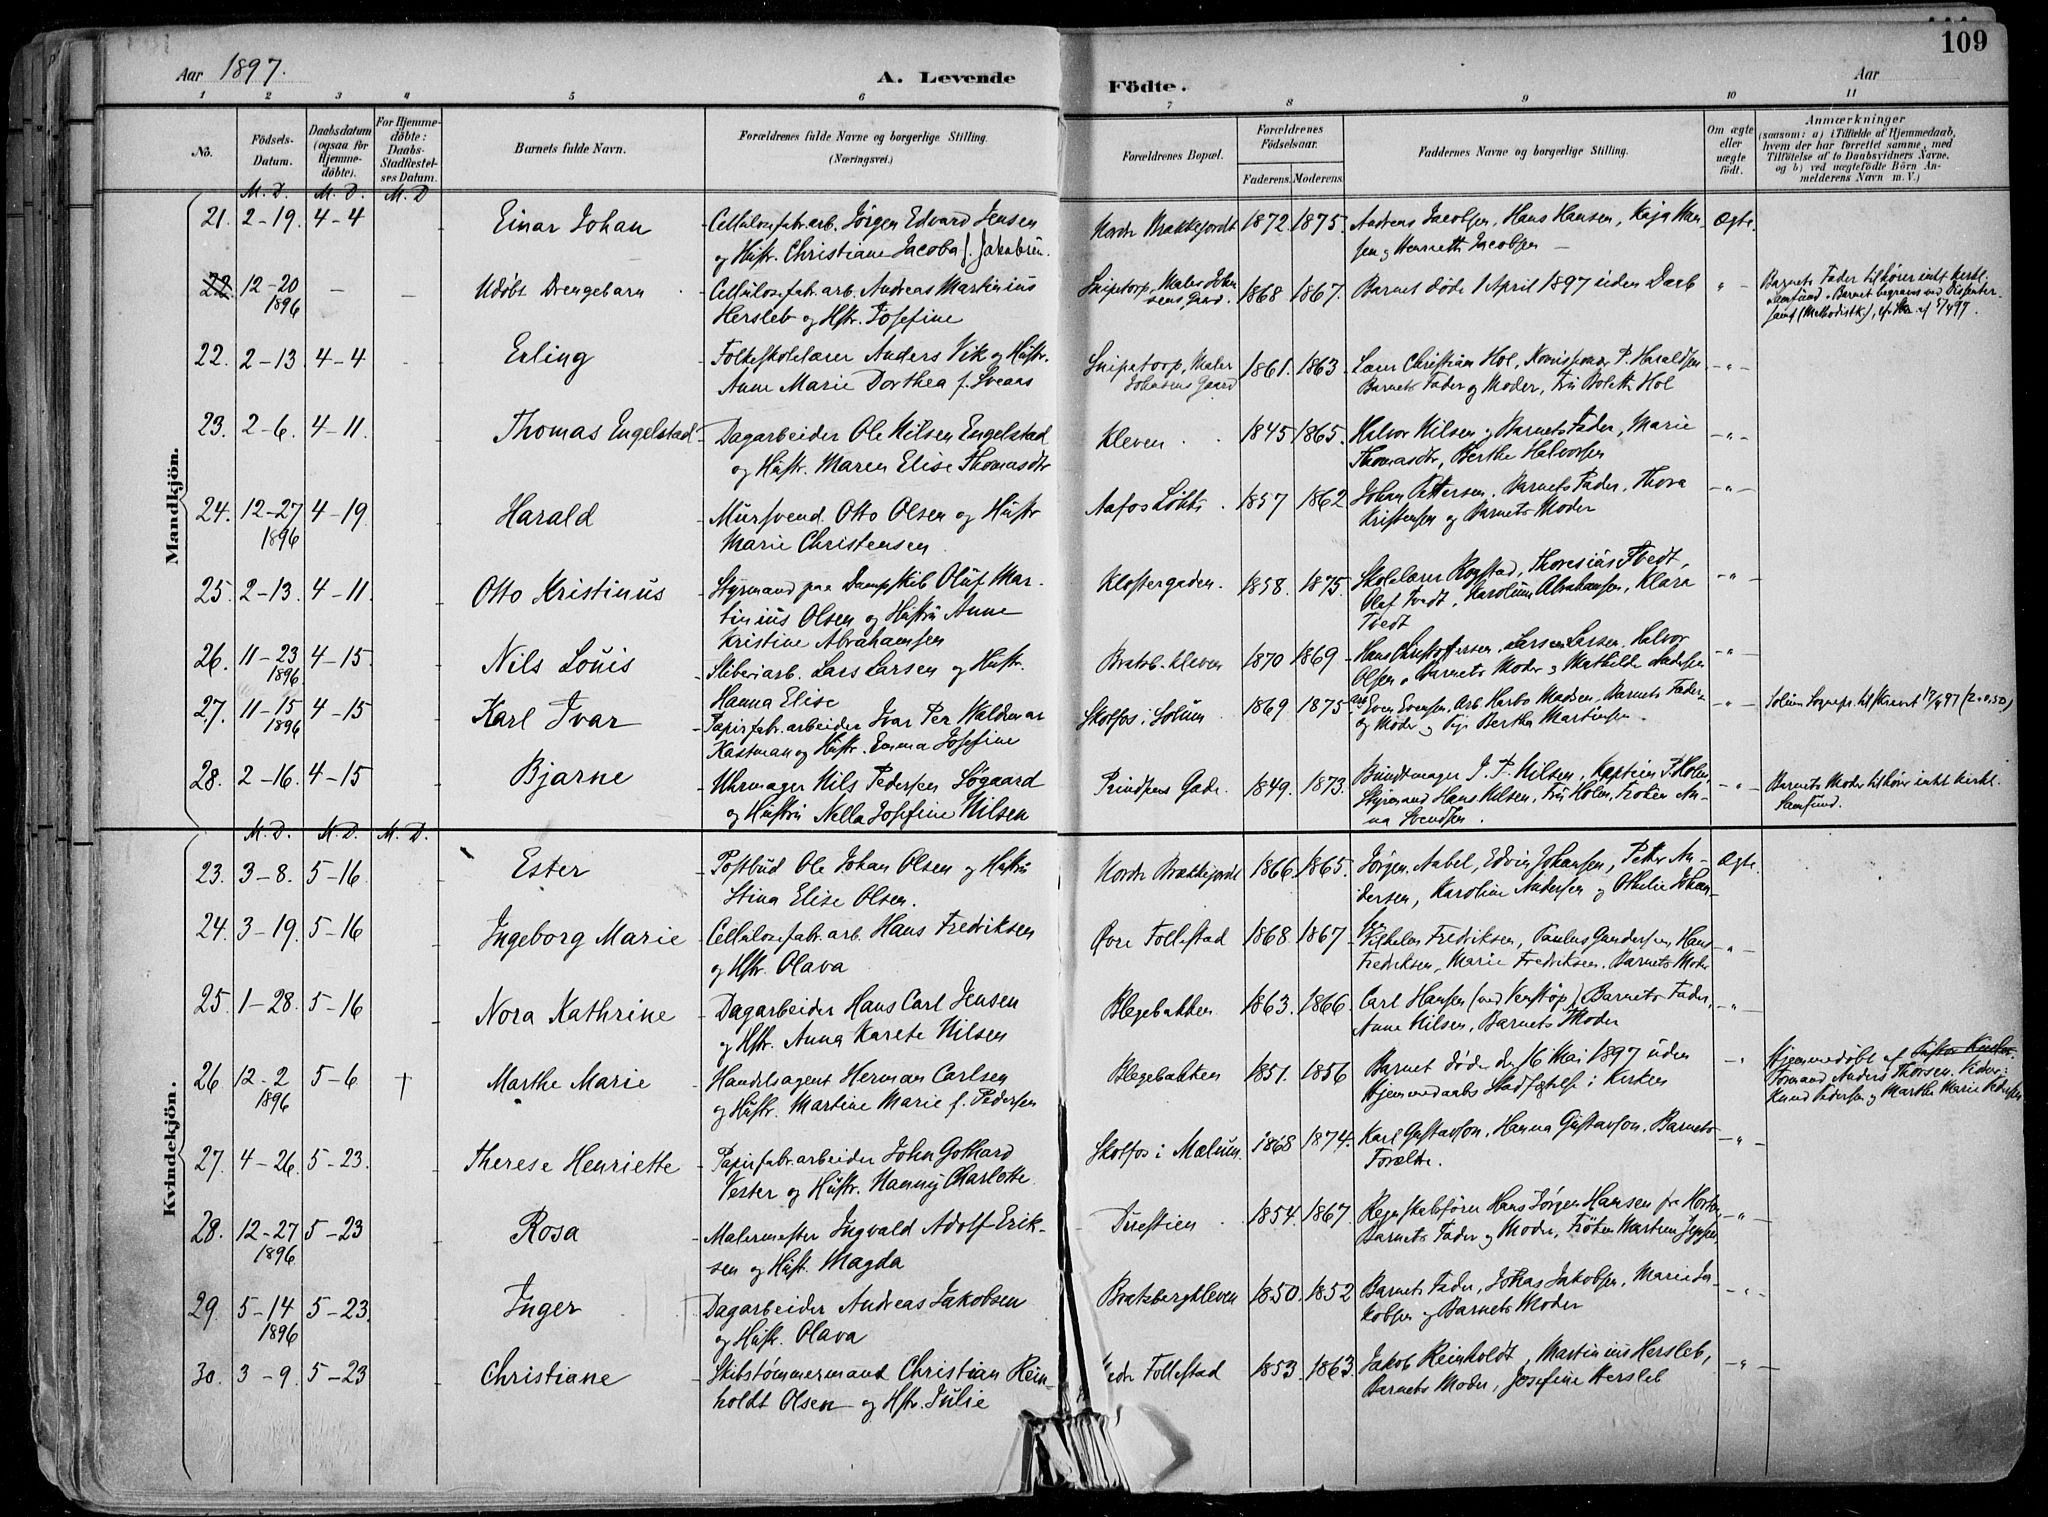 109
Aar 1897.
A. Levende
Födte.
Aar
1 2 3 4 5 6 7 8 9 10 11
No.
Födsels-Datum.
Daabsdatum (ogsaa for Hjemme-döbte).
For Hjemme-döbte: Daabs-Stadfæstel-ses Datum.
Barnets fulde Navn.
Forældrenes fulde Navne og borgerlige Stilling.
(Næringsvei.)
Forældrenes Bopæl.
Forældrenes Födselsaar.
Faderens. Moderens.
Faddernes Navne og borgerlige Stilling.
Om ægte eller uægte födt.
Anmærkninger
(saasom: a) i Tilfælde af Hjemmedaab, hvem der har forrettet samme, med Tilföielse af to Daabsvidners Navne, og b) ved uægtefödte Börn An-melderens Navn m. V.)
M. D. M. D. M. D.
Mandkjön.
21. 2-19. 4-4 Einar Johan Cellulosefabr.arb. Jörgen Edvard Jensen Nordr Brækkejordet 1872. 1875. Andreas Jacobsen, Hans Hansen, Kaja Han- Ægte.
og Hustr. Christiane Jacoba f. Jakobsen. sen og Henriette Jacobsen
22. 12-20 1896 - - Udøbt Drengebarn Cellulosefabr.arb. Andreas Martinius Snipetorp, Maler Johan- 1868 1867. Barnet døde 1 April 1897 uden Daab -"- Barnets Fader tilhører intet kirkl.
Hersleb og Hstr. Josefine sens Gaard. Samfund. Barnet begraves ved Dissenter-
samf. (Methodistk.)
22. 2-13. 4-4 Erling Folkeskolelærer Anders Vik og Hustr. Snipetorp, Maler 1861. 1863. Lærer Christian Hol, P. Haraldsen -"-
Anne Marie Dorthea f. Sveaas Johnsens Gaard Barnets Fader og Moder, Fru Bolette Hol
23. 2-6. 4-11. Thomas Engelstad Dagarbeider Ole Nilsen Engelstad Kleven 1845 1865. Halvor Nilsen og Barnets Fader, Marie -"-
og Hustr. Maren Elise Thomasdtr Thomasdtr, Berthe Halvorsen
24. 12-27 1896 4-19. Harald Mursvend Otto Olsen og Hustr Aafos Løkke 1857 1862 Johan Pettersen, Barnets Fader, Thora -"-
Marie Christensen Kristensen og Barnets Moder
25. 2-13. 4-11. Otto Kristinus Styrmand paa Dampskib Oluf Mar- Klostergaden. 1858. 1875. Skolelærer Rogstad, Thoresius Tvedt, -"-
tinius Olsen og Hustru Anne Olaf Tvedt, Karoline Abrahamsen, Klara
Kristine Abrahamsen Tvedt
26. 11-23 1896 4-15. Nils Louis Sliberiarb. Lars Larsen og Hustr. Bratsb.kleven 1870 1869 Hans Christoffersen, Lars Larsen, Halvor -"-
Hanna Elise Olsen, Barnets Moder og Mathilde Ladesen
27. 11-15 1896 4-15 Karl Ivar Papirfabr.arbeider Ivar Per Waldemar Skotfos i Solum 1869 1875 Arb. Even Evensen, Arb. Harbo Madsen, Barnets Fader -"- Solum Sognepr. tilskrevet 17/4 97 (2-0.50)
Kastman og Hustr. Emma Josefine og Moder og Pige Bertha Martinsen
28. 2-16. 4-15 Bjarne Uhrmager Nils Pedersen Søgaard Prindsens Gade. 1849. 1873. Bundtmager J. P. Nilsen, Kaptein P. Holm, -"- Barnets Moder tilhører intet kirkl.
og Hustru Nella Josefine Nilsen Styrmand Hans Nilsen, Fru Holm, Frøken An- Samfund.
na Svendsen.
M. D. M. D. M. D.
Kvindekjön.
23. 3-8. 5-16 Ester Postbud Ole Johan Olsen og Hustru Nordr Brækkejordet 1866. 1865. Jørgen Aabel, Edvin Johansen, Peter An- Ægte.
Stina Elise Olsen. dersen, Karoline Andersen og Othilie Johan-
24. 3-19. 5-16 Ingeborg Marie Cellulosefabr.arb. Hans Fredriksen Øvre Follestad 1868. 1867 Vilhelm Fredriksen, Paulus Gundersen, Hans -"-
og Hstr. Olava Fredriksen, Marie Fredriksen. Barnets Moder
25. 1-28. 5-16 Nora Kathrine Dagarbeider Hans Carl Jensen Blegebakken 1863. 1866. Carl Hansen (ved Venstøp) Barnets Fader, -"-
og Hstr. Anna Karete Nilsen Anne Nilsen, Barnets Moder
26. 12-2 1896 5-6 † Marthe Marie Handelsagent Herman Carlsen Blegebakken 1851. 1856 Barnet døde den 16 Mai 1897 uden -"- Hjemmedøbt af
og Hustr. Martine Marie f. Pedersen Hjemmedaabs Stadfæstelse i Kirken Formand Anders Thorsen. Vidner:
Knud Pedersen og Marthe Marie Pedersen
27. 4-26. 5-23. Therese Henriette Papirfabr.arbeider John Gothard Skotfos i Mælum. 1868 1874. Karl Gustavson, Hanna Gustavson. Barnets -"-
Vester og Hustr. Nanny Charlotte Forældre.
28. 12-27 1896. 5-23 Rosa Malermester Ingvald Adolf Erik- Duestien 1854. 1867 Regnskabsfører Hans Jørgen Hansen fra Horten -"-
sen og Hustr. Magda Barnets Fader og Moder, Frøken Martine Jeppesen
29. 5-14 1896 5-23. Inger Dagarbeider Andreas Jakobsen Bratsbergkleven 1850. 1852 Barnets Fader, Johas Jakobsen, Marie Ja- -"-
og Hustr. Olava kobsen og Barnets Moder
30. 3-9. 5-23 Christiane Skibstømmermand Christian Rein- Nedr Follestad 1853. 1863. Jakob Reinholdt, Martinius Hersleb, -"-
holdt Olsen og Hstr. Julie Barnets Moder, Josefine Hersleb